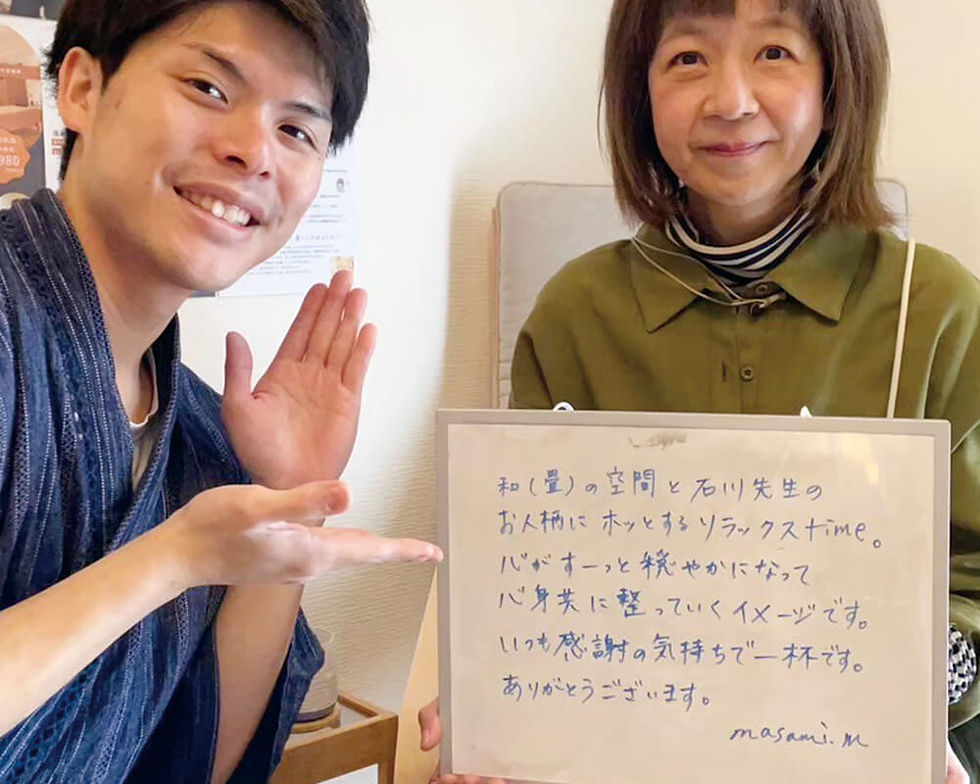 980
和(畳)の空間と石川先生の
お人柄にホッとするリラックスtime。
心がすーっと穏やかになって
心身共に整っていくイメージです。
いつも感謝の気持ちで一杯です。
ありがとうございます。
masami.M